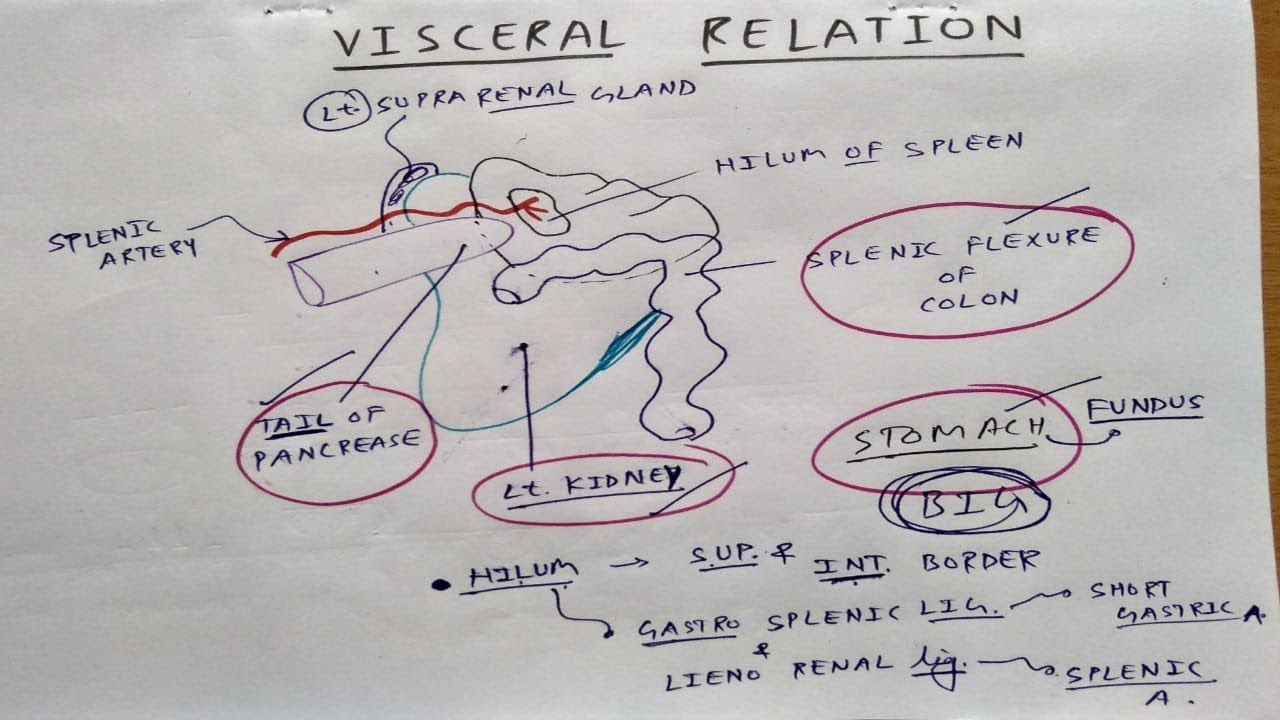 VISCERAL RELATION
Lt. SUPRA RENAL GLAND
HILUM OF SPLEEN
SPLENIC
ARTERY
SPLENIC FLEXURE
OF
COLON
TAIL OF
PANCREASE
Lt. KIDNEY
STOMACH
FUNDUS
BIG
• HILUM → SUP. & INT. BORDER
GASTRO SPLENIC LIG. SHORT
GASTRIC A.
&
LIENO RENAL lig. SPLENIC
A.